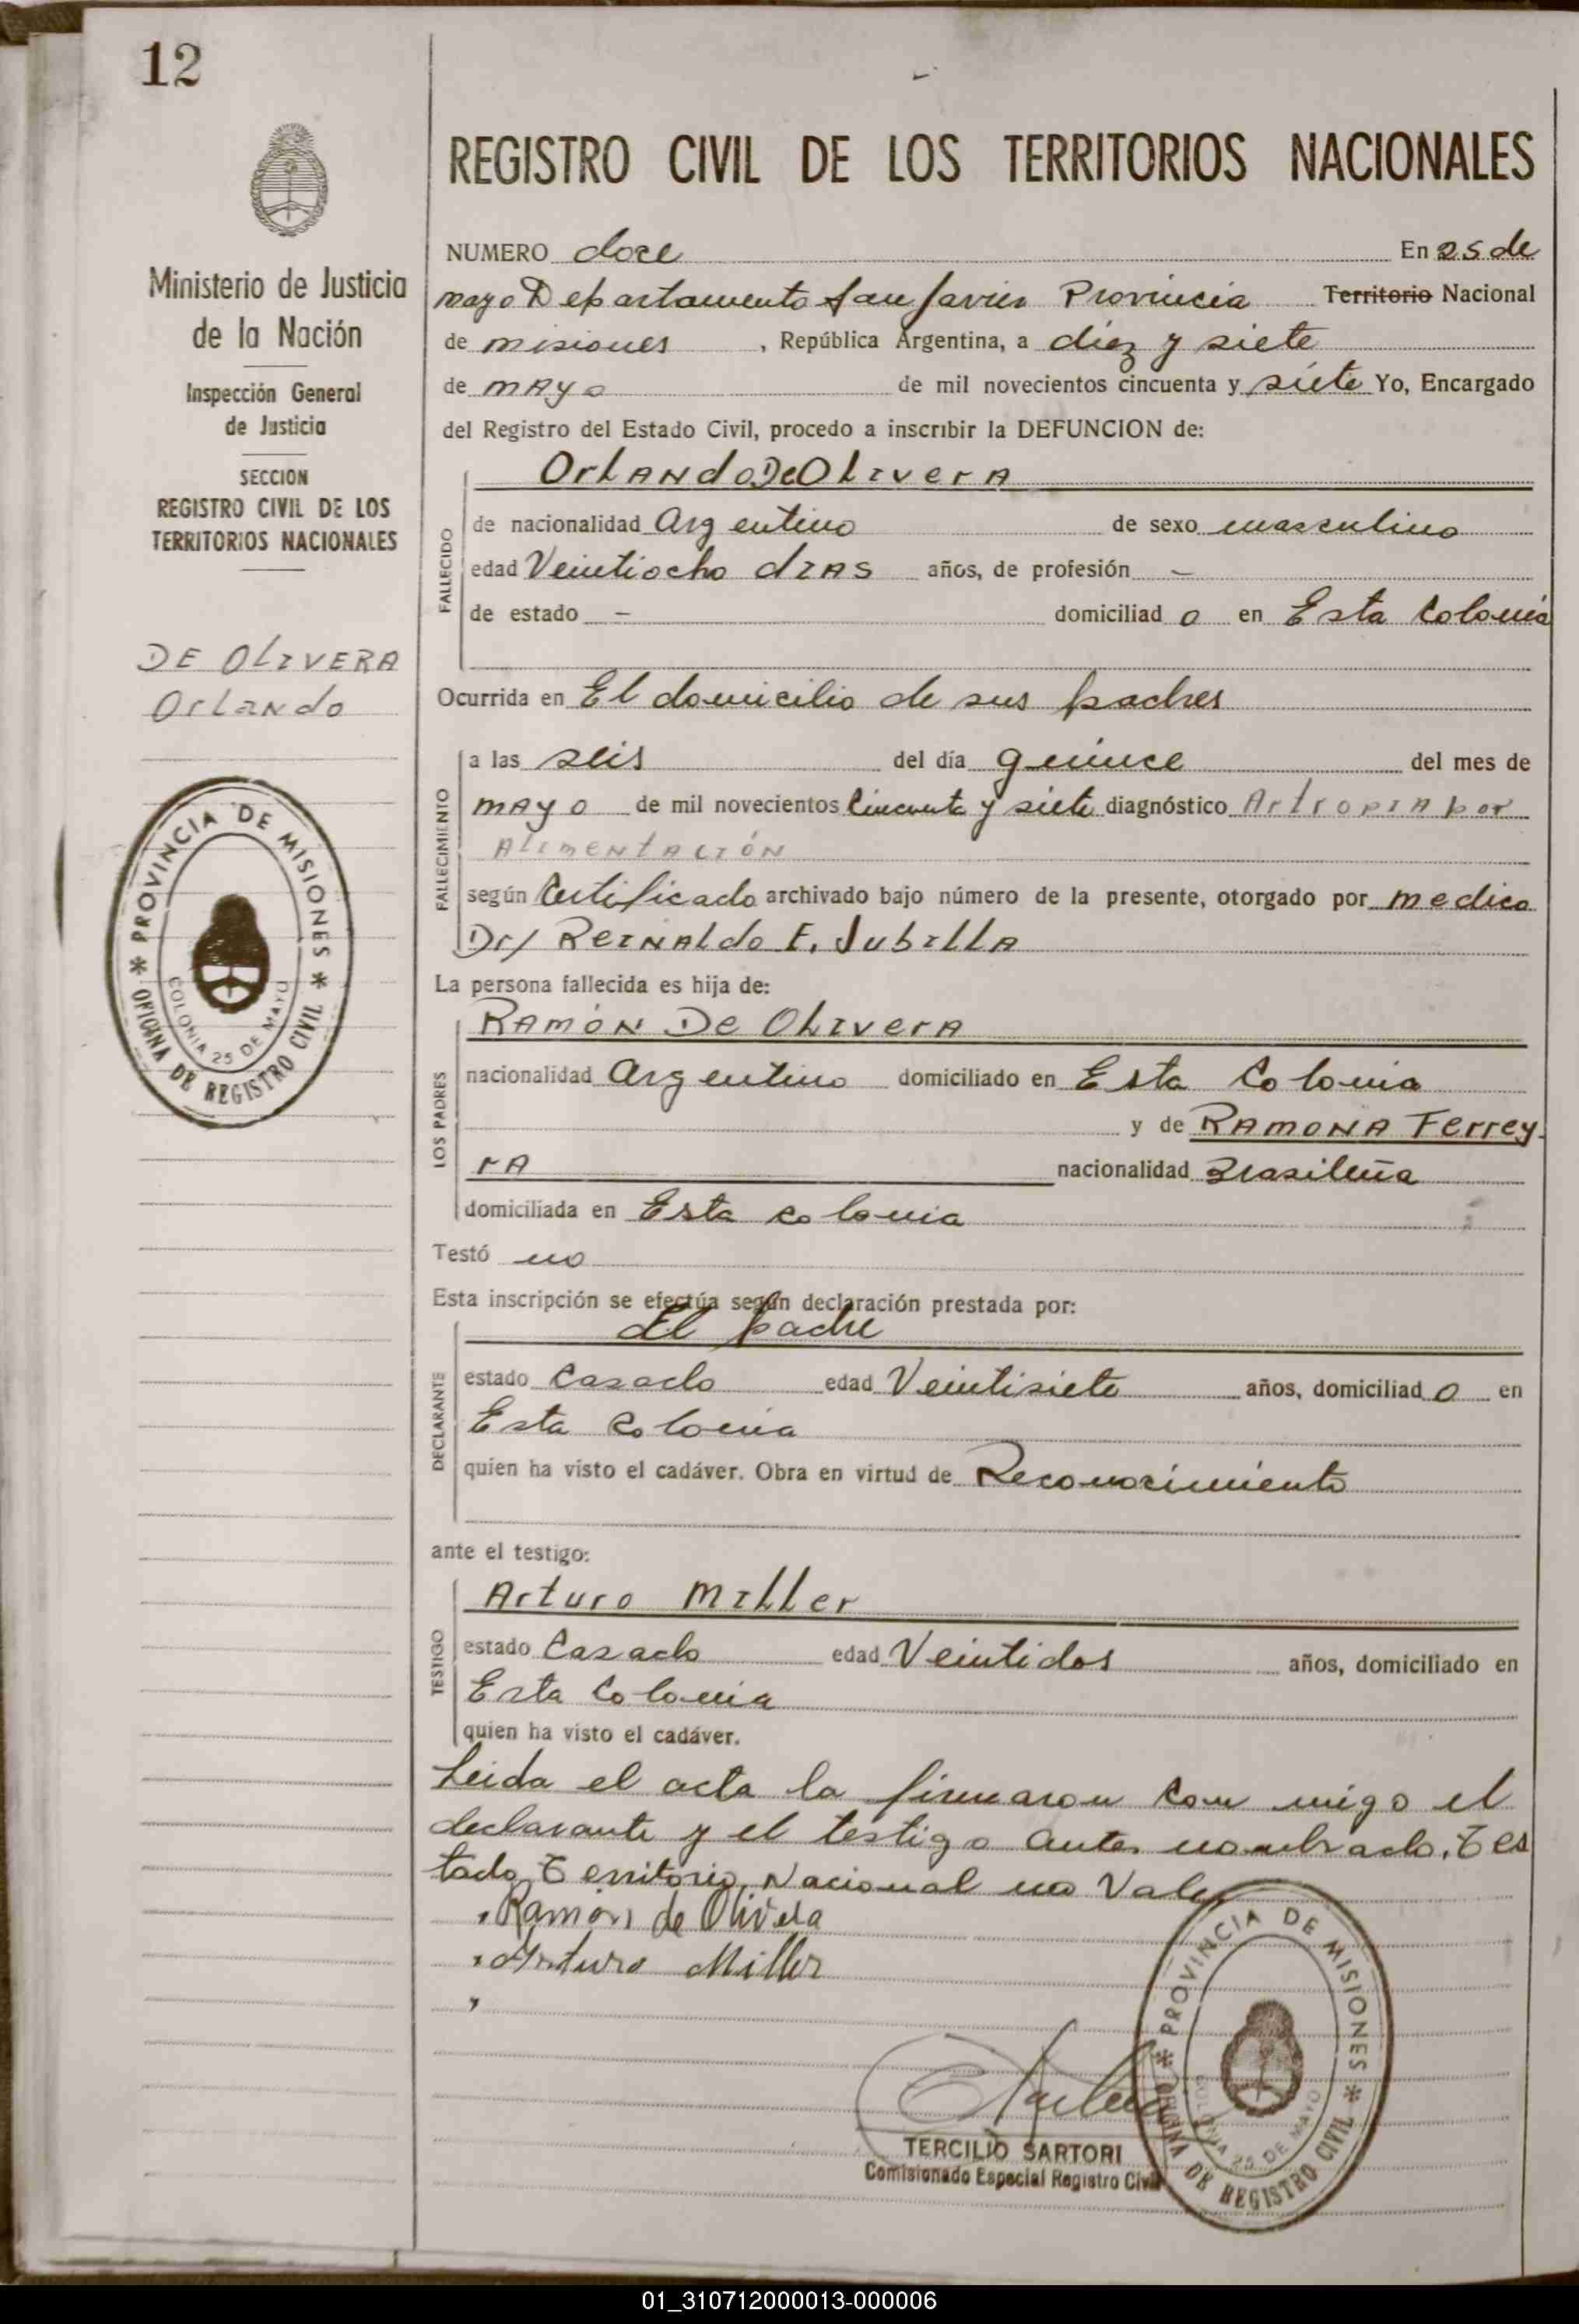 12
Ministerio de Justicia
de la Nación
Inspección General
de Justicia
SECCION
REGISTRO CIVIL DE LOS
TERRITORIOS NACIONALES
DE OLIVERA
Orlando
PROVINCIA DE MISIONES
OFICINA DE REGISTRO CIVIL
COLONIA 25 DE MAYO
REGISTRO CIVIL DE LOS TERRITORIOS NACIONALES
NUMERO doce En 25 de
mayo Departamento San Javier Provincia Territorio Nacional
de misiones, República Argentina, a diez y siete
de mayo de mil novecientos cincuenta y siete Yo, Encargado
del Registro del Estado Civil, procedo a inscribir la DEFUNCION de:
Orlando De Olivera
FALLECIDO
de nacionalidad Argentino de sexo masculino
edad Veintiocho dias años, de profesión -
de estado - domiciliad o en Esta Colonia
Ocurrida en El domicilio de sus padres
FALLECIMIENTO
a las seis del día quince del mes de
mayo de mil novecientos Cincuenta y siete diagnóstico Artropia por
Alimentación
según Certificado archivado bajo número de la presente, otorgado por medico
Dr/ Reinaldo F. Jubilla
La persona fallecida es hija de:
LOS PADRES
Ramón De Olivera
nacionalidad Argentino domiciliado en Esta Colonia
y de Ramona Ferrey-
ra nacionalidad Brasileña
domiciliada en Esta colonia
Testó no
Esta inscripción se efectúa según declaración prestada por:
El padre
DECLARANTE
estado Casado edad Veintisiete años, domiciliad o en
Esta Colonia
quien ha visto el cadáver. Obra en virtud de Reconocimiento
ante el testigo:
TESTIGO
Arturo Miller
estado Casado edad Veintidos años, domiciliado en
Esta Colonia
quien ha visto el cadáver.
Leida el acta la firmaron con migo el
declarante y el testigo antes nombrado. Tes
tado, Territorio, Nacional no Vale
Ramón de Olivera
Arturo Miller
TERCILIO SARTORI
Comisionado Especial Registro Civil
PROVINCIA DE MISIONES
OFICINA DE REGISTRO CIVIL
COLONIA 25 DE MAYO
01_310712000013-000006